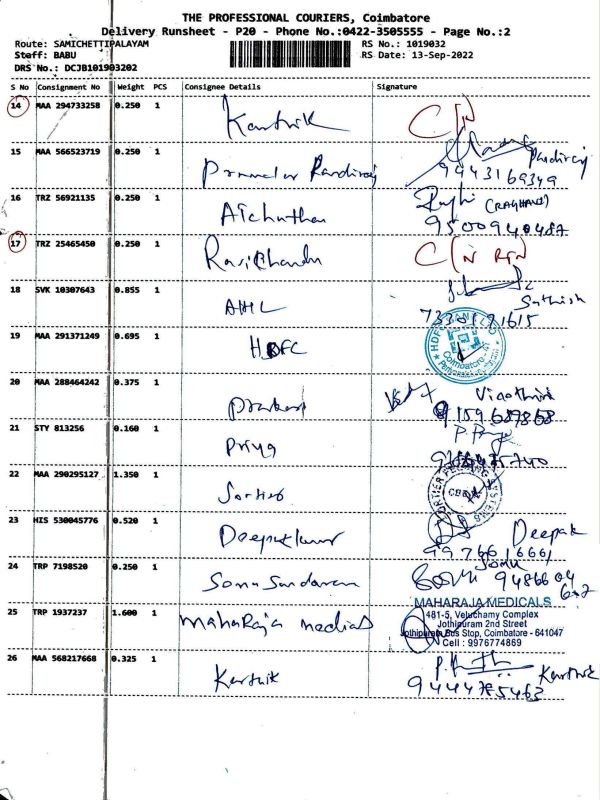 THE PROFESSIONAL COURIERS, Coimbatore
Delivery Runsheet - P20 - Phone No.:0422-3505555 - Page No.:2
Route: SAMICHETTIPALAYAM RS No.: 1019032
Staff: BABU RS Date: 13-Sep-2022
DRS No.: DCJB101903202
S No Consignment No Weight PCS Consignee Details Signature
14 MAA 294733258 0.250 1 Karthik
15 MAA 566523719 0.250 1 Pandiraj Pandiraj
9443169349
16 TRZ 56921135 0.250 1 Atchuthan (RAGHAVI)
9500940487
17 TRZ 25465450 0.250 1 Ravichandru
18 SVK 10307643 0.855 1 AHL Sathish
7330191615
19 MAA 291371249 0.695 1 HDFC
Coimbatore
20 MAA 288464242 0.375 1 Prakash
9159689868
21 STY 813256 0.160 1 Priya P. Priya
22 MAA 290295127 1.350 1
23 HIS 530045776 0.520 1 Deepakkumar Deepak
9976616661
24 TRP 7198520 0.250 1 Somu Sundaram Somu
9486604
25 TRP 1937237 1.600 1 Maharaja medicals
MAHARAJA MEDICALS
481-5, Veluchamy Complex
Jothipuram 2nd Street
Jothipuram Bus Stop, Coimbatore - 641047
Cell : 9976774869
26 MAA 568217668 0.325 1 Karthik Karthik
9444785463